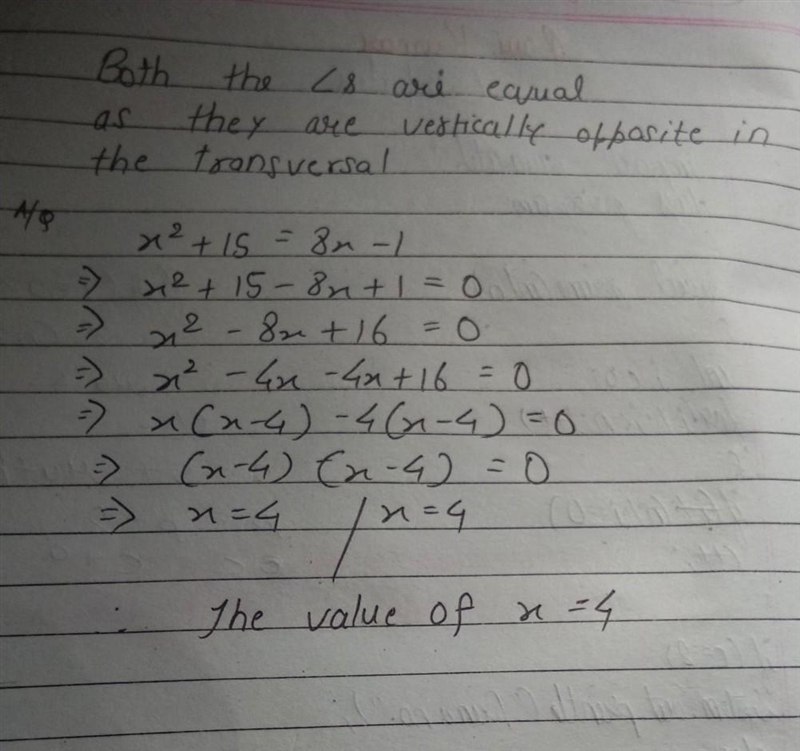 Both the ∠s are equal
as they are vertically opposite in
the transversal
A/Q
x² + 15 = 8x - 1
⇒ x² + 15 - 8x + 1 = 0
⇒ x² - 8x + 16 = 0
⇒ x² - 4x - 4x + 16 = 0
⇒ x(x-4) - 4(x-4) = 0
⇒ (x-4) (x-4) = 0
⇒ x = 4 / x = 4
∴ The value of x = 4